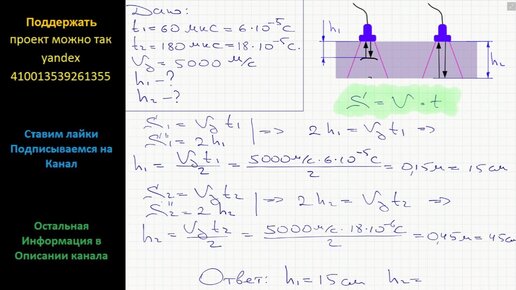 Поддержать
проект можно так
yandex
410013539261355
Ставим лайки
Подписываемся на
Канал
Остальная
Информация в
Описании канала
Дано:
t₁=60 мкс = 6·10⁻⁵с
t₂=180 мкс = 18·10⁻⁵с.
Vз = 5000 м/с
h₁-?
h₂-?
h₁
h₂
S = V·t
S₁ = Vз t₁
S₁ = 2h₁ |=> 2h₁ = Vз t₁ =>
h₁ = Vз t₁ / 2 = 5000 м/с · 6·10⁻⁵с / 2 = 0,15м = 15см
S₂ = Vз t₂
S₂ = 2h₂ |=> 2h₂ = Vз t₂ =>
h₂ = Vз t₂ / 2 = 5000 м/с · 18·10⁻⁶с / 2 = 0,45м = 45см
Ответ: h₁ = 15см h₂=